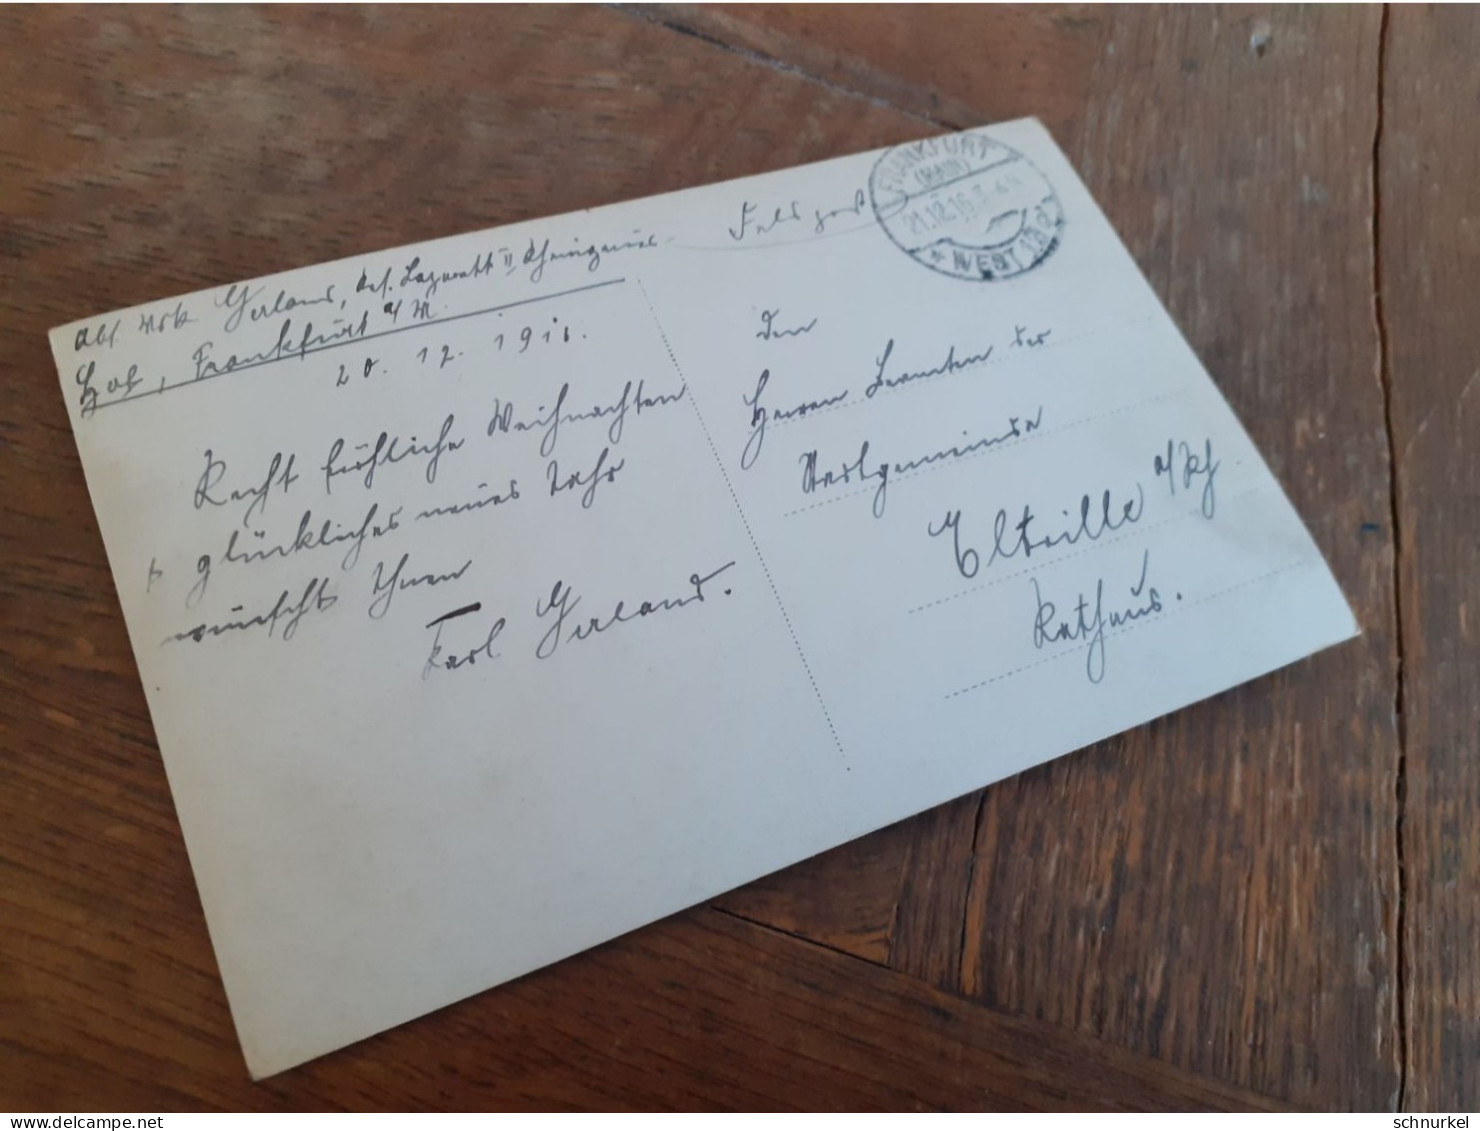 Abs. Msk. Gerland, Res. Lazarett II Rheingauer
Hof, Frankfurt a/M.
20. 12. 1916.
Recht fröhliche Weihnachten
& glückliches neues Jahr
wünscht Ihnen
Karl Gerland.
Feldpost
FRANKFURT
(MAIN)
21.12.16
* WEST 13 d
Den
Herren Beamten der
Stadtgemeinde
Eltville a/Rh.
Rathaus.
schnurkel